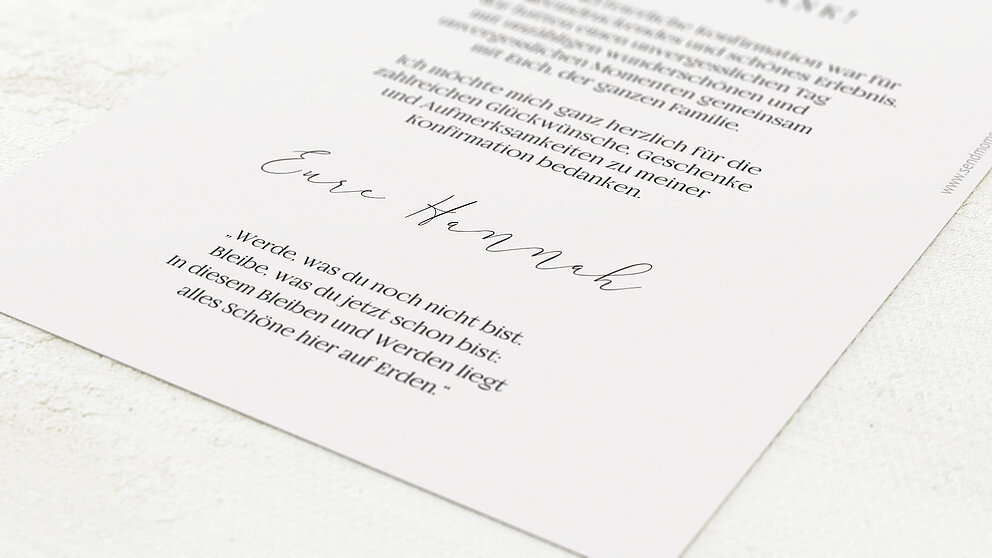 Konfirmation war für
und schönes Erlebnis.
einen unvergesslichen Tag
mit unzähligen wunderschönen und
unvergesslichen Momenten gemeinsam
mit Euch, der ganzen Familie.
Ich möchte mich ganz herzlich für die
zahlreichen Glückwünsche, Geschenke
und Aufmerksamkeiten zu meiner
Konfirmation bedanken.
Eure Hannah
„Werde, was du noch nicht bist.
Bleibe, was du jetzt schon bist:
In diesem Bleiben und Werden liegt
alles Schöne hier auf Erden.“